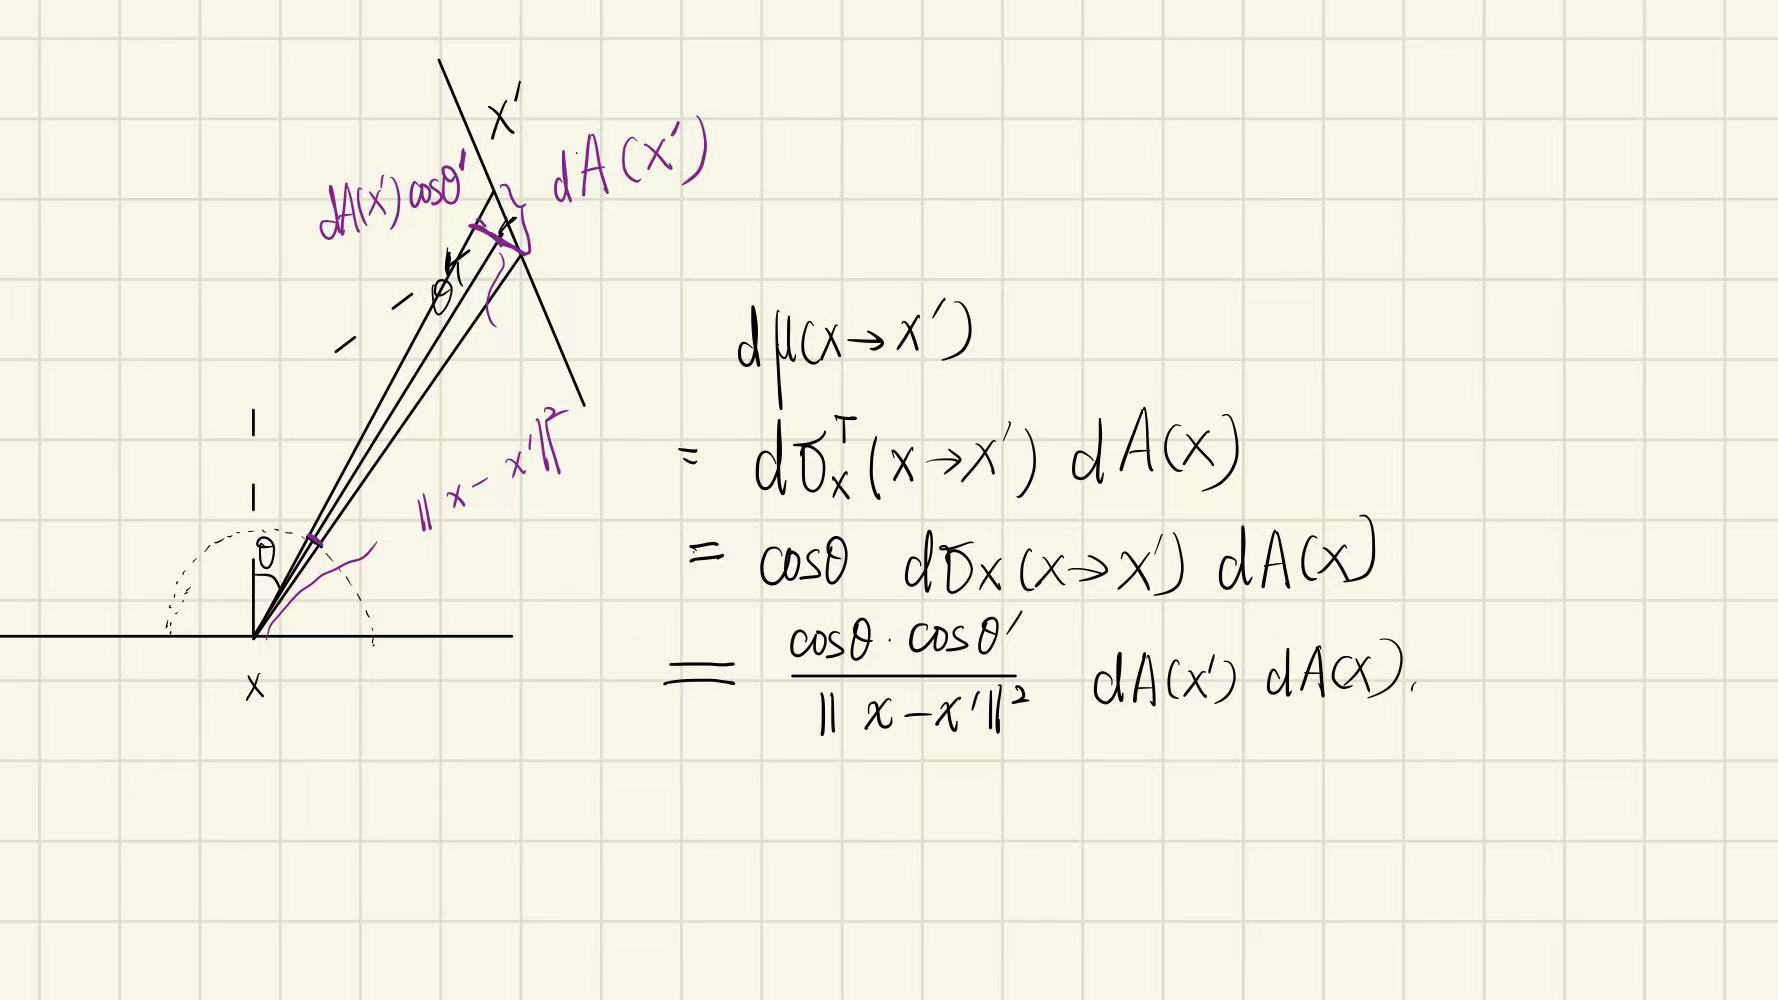 x'
dA(x')
dA(x')cosθ'
θ'
‖x-x'‖²
θ
x
dμ(x→x')
= dσₓᵀ(x→x') dA(x)
= cosθ dσₓ(x→x') dA(x)
= cosθ·cosθ' / ‖x-x'‖² dA(x') dA(x).